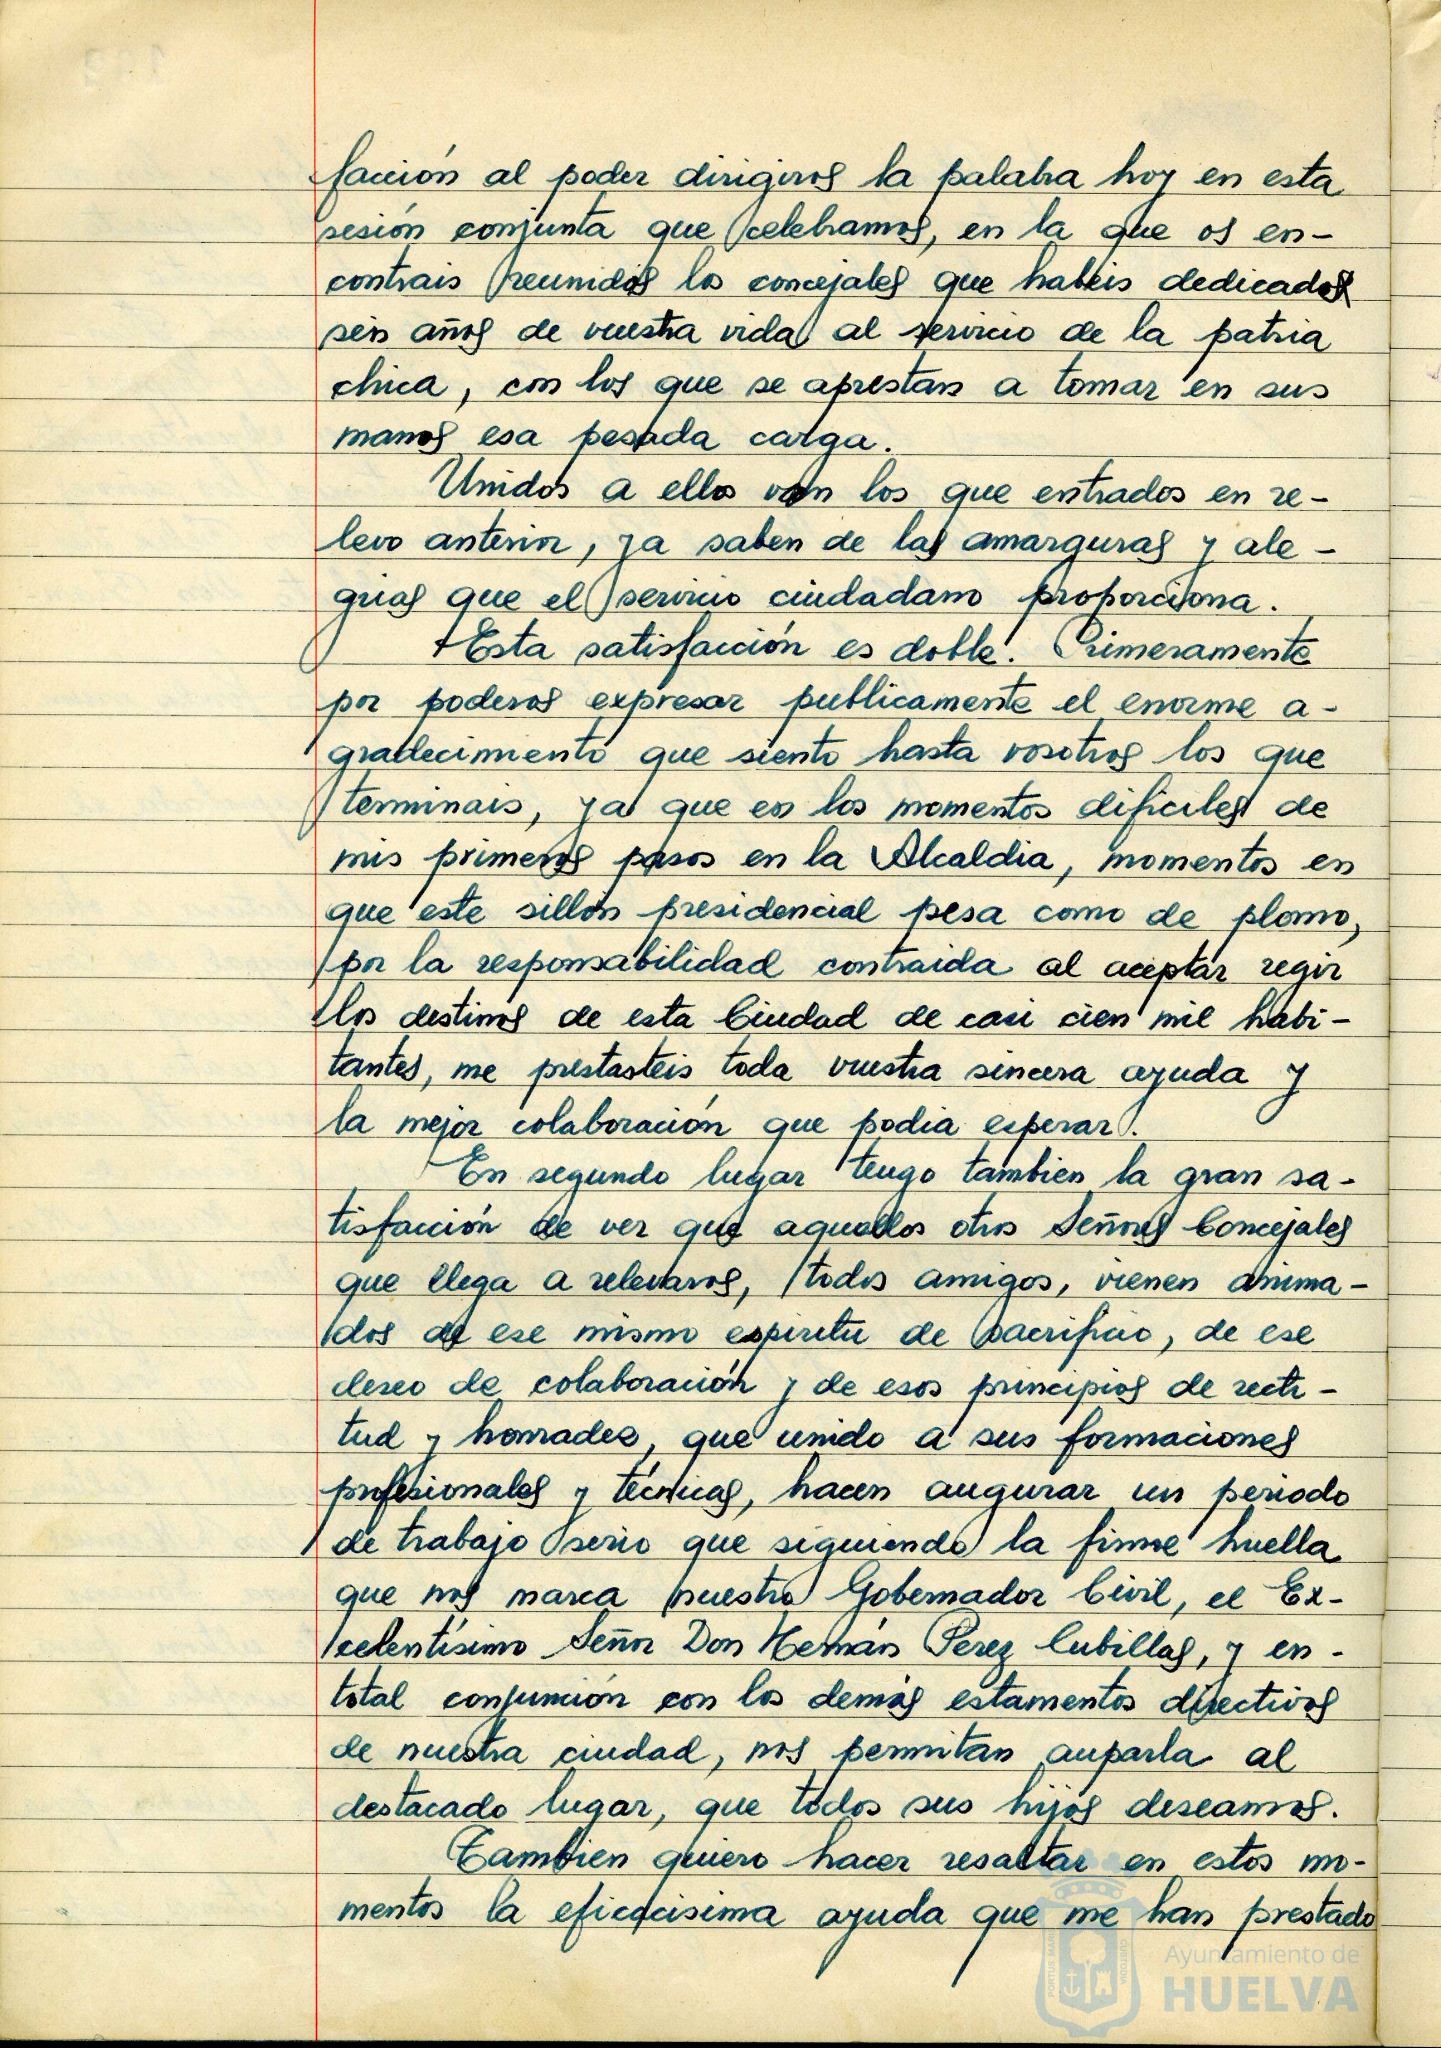 facción al poder dirigiros la palabra hoy en esta
sesión conjunta que celebramos, en la que os en-
contrais reunidos los concejales que habeis dedicados
seis años de vuestra vida al servicio de la patria
chica, con los que se aprestan a tomar en sus
manos esa pesada carga.
Unidos a ellos van los que entrados en re-
levo anterior, ya saben de las amarguras y ale-
grias que el servicio ciudadano proporciona.
Esta satisfacción es doble. Primeramente
por poderos expresar publicamente el enorme a-
gradecimiento que siento hasta vosotros los que
terminais, ya que en los momentos dificiles de
mis primeros pasos en la Alcaldia, momentos en
que este sillón presidencial pesa como de plomo,
por la responsabilidad contraida al aceptar regir
los destinos de esta Ciudad de casi cien mil habi-
tantes, me prestasteis toda vuestra sincera ayuda y
la mejor colaboración que podia esperar.
En segundo lugar tengo tambien la gran sa-
tisfacción de ver que aquellos otros Señores Concejales
que llega a relevaros, todos amigos, vienen anima-
dos de ese mismo espiritu de sacrificio, de ese
deseo de colaboración y de esos principios de recti-
tud y honradez, que unido a sus formaciones
profesionales y técnicas, hacen augurar un periodo
de trabajo serio que siguiendo la firme huella
que nos marca nuestro Gobernador Civil, el Ex-
celentísimo Señor Don Hernán Perez Cubillas, y en-
total conjunción con los demás estamentos directivos
de nuestra ciudad, nos permitan auparla al
destacado lugar, que todos sus hijos deseamos.
Tambien quiero hacer resaltar en estos mo-
mentos la eficacisima ayuda que me han prestado
Ayuntamiento de
HUELVA